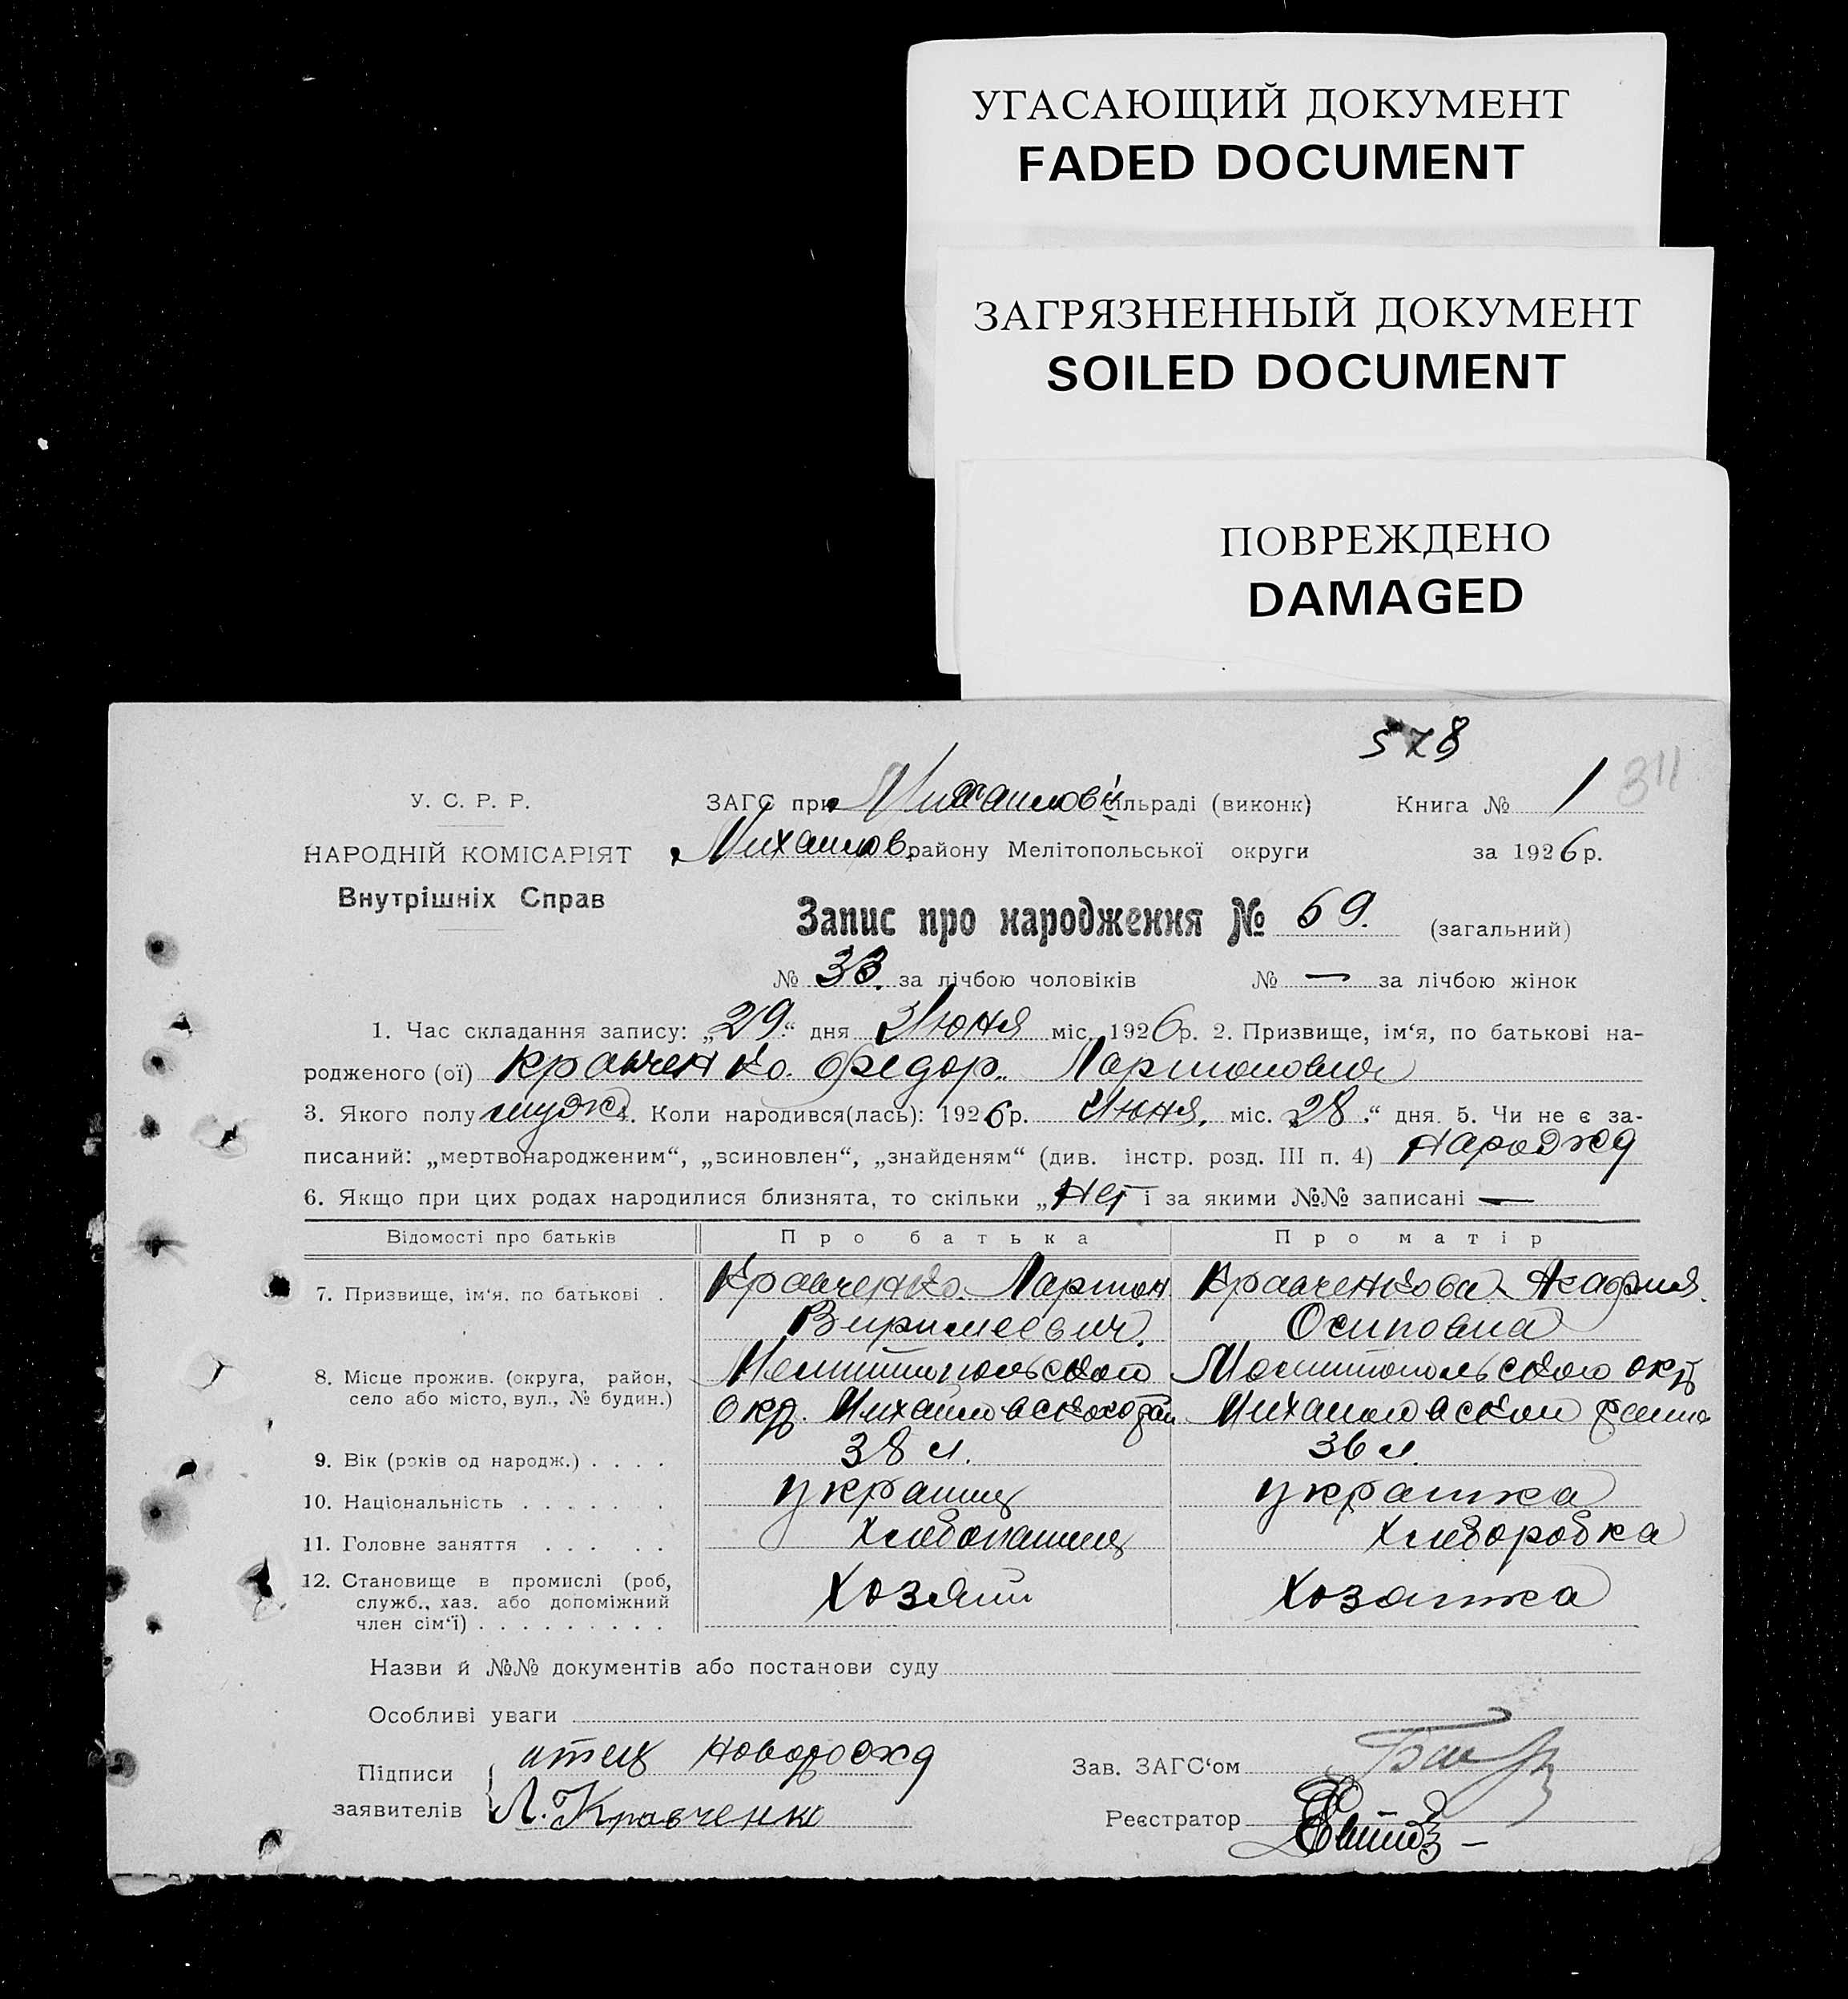 УГАСАЮЩИЙ ДОКУМЕНТ
FADED DOCUMENT
ЗАГРЯЗНЕННЫЙ ДОКУМЕНТ
SOILED DOCUMENT
ПОВРЕЖДЕНО
DAMAGED
578
311
У. С. Р. Р.
ЗАГС при Михайловскій сільраді (виконк) Книга № 1
НАРОДНІЙ КОМІСАРІЯТ
Михайлов району Мелітопольської округи за 1926 р.
Внутрішніх Справ
Запис про народження № 69. (загальний)
№ 33. за лічбою чоловіків № — за лічбою жінок
1. Час складання запису: „29“ дня Июня міс. 1926 р. 2. Призвище, ім‘я, по батькові на-
родженого (ої) Кравченко. Федор. Ларионович
3. Якого полу муж 4. Коли народився(лась): 1926 р. Июня. міс. 28“ дня. 5. Чи не є за-
писаний: „мертвонародженим“, „всиновлен“, „знайденям“ (див. інстр. розд. III п. 4) Народжд
6. Якщо при цих родах народилися близнята, то скільки „Нет і за якими №№ записані —
Відомості про батьків Про батька Про матір
7. Призвище, ім‘я, по батькові . Кравченко. Ларион Кравченкова
Осиповна
8. Місце прожив. (округа, район, Мелитопольской Мелитопольского окр
село або місто, вул., № будин.) Окр. Михайловского рай Михайловской района
9. Вік (років од народж.) . . . . 38 л. 36 л.
10. Національність . . . . . . . украинц украинка
11. Головне заняття . . . . . Хлебопашец Хлеборобка
12. Становище в промислі (роб, Хозяин Хозяйка
служб., хаз. або допоміжний
член сім‘ї) . . . . . . . . .
Назви й №№ документів або постанови суду
Особливі уваги
Підписи отец новорожд Зав. ЗАГС‘ом
заявителів Л. Кравченко Реєстратор